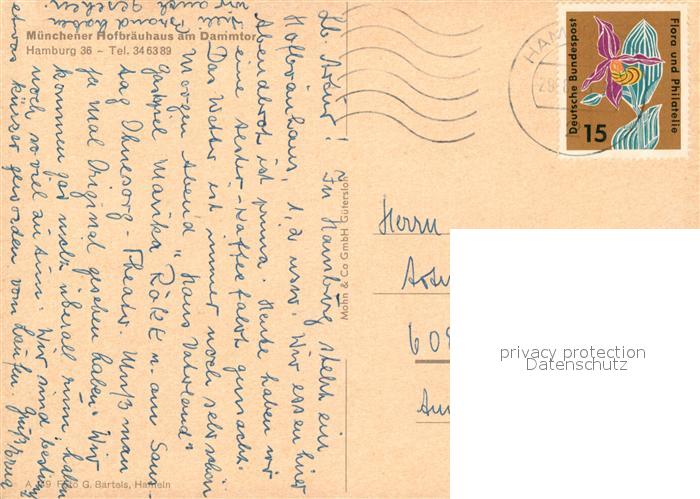 Münchener Hofbräuhaus am Dammtor
Hamburg 36 – Tel. 34 63 89
Lb. Artur! In Hamburg steht ein
Hofbräuhaus, 1, 2 usw. Wir essen hier
Abendbrot ist prima. Heute haben wir
eine Alster-Kaffeefahrt gemacht.
Das Wetter ist immer noch sehr schön
Morgen Abend „Haus Vaterland"
Gastspiel Marika Rökk u. am Sam-
tag Ohnesorg-Theater. Muß man
ja mal Original gesehen haben. Wir
kommen gar nicht überall rum haben
noch so viel zu tun. Wir sind bestimmt
etwas kürzer geworden vom Laufen. Gruß
haben
wir auch gesehen
Mohn & Co GmbH Gütersloh
A 139 Foto G. Bartels, Hameln
HAM
Deutsche Bundespost
Flora und Philatelie
15
Herrn
Artur
60
privacy protection
Datenschutz